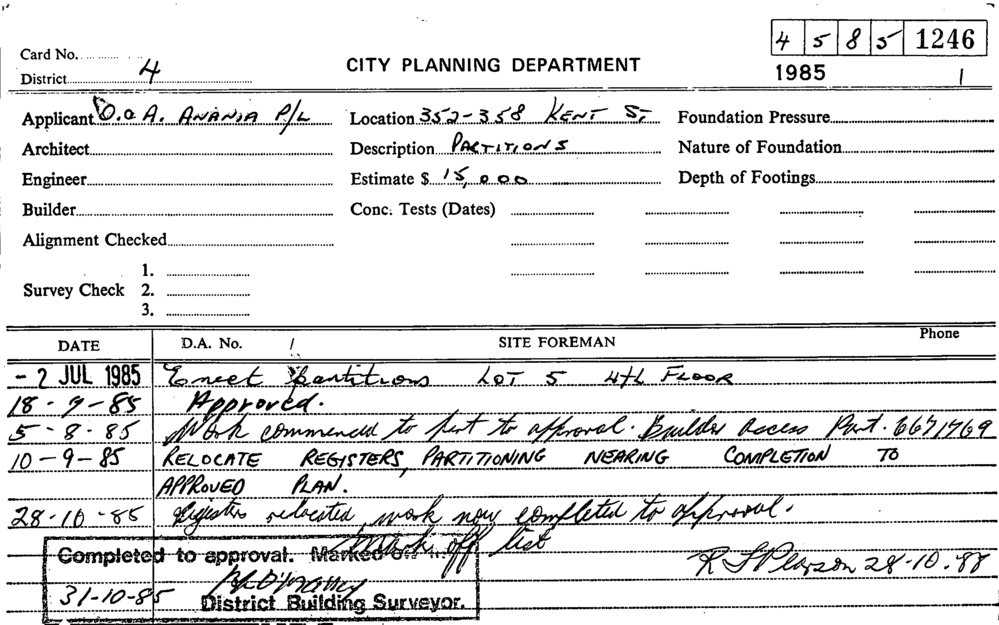 4 5 8 5 1246
Card No.
CITY PLANNING DEPARTMENT
1985 1
District 4
Applicant O. & A. ANANIA P/L Location 352-358 KENT ST. Foundation Pressure
Architect Description PARTITIONS Nature of Foundation
Engineer Estimate $ 15,000 Depth of Footings
Builder Conc. Tests (Dates)
Alignment Checked
1.
Survey Check 2.
3.
DATE D.A. No. / SITE FOREMAN Phone
- 2 JUL 1985 Erect partitions LOT 5 4th FLOOR
18-9-85 Approved.
5-8-85 Work commenced to part to approval. Builder Access Part. 6671769
10-9-85 RELOCATE REGISTERS, PARTITIONING NEARING COMPLETION TO
APPROVED PLAN.
28-10-85 Registers relocated, work now completed to approval.
Mark off list
Completed to approval. Marked off
R Pearson 28-10-88
31-10-85 District Building Surveyor.